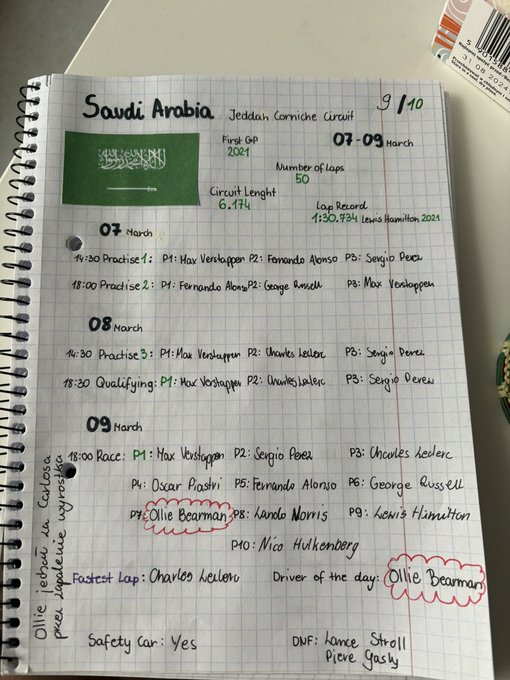 Saudi Arabia Jeddah Corniche Circuit 9/10
First GP 07-09 March
2021
Number of Laps
50
Circuit Lenght
6.174
Lap Record
1:30.734 Lewis Hamilton 2021
07 March
14:30 Practise 1: P1: Max Verstappen P2: Fernando Alonso P3: Sergio Perez
18:00 Practise 2: P1: Fernando Alonso P2: George Russell P3: Max Verstappen
08 March
14:30 Practise 3: P1: Max Verstappen P2: Charles Leclerc P3: Sergio Perez
18:30 Qualifying: P1: Max Verstappen P2: Charles Leclerc P3: Sergio Perez
09 March
18:00 Race: P1: Max Verstappen P2: Sergio Perez P3: Charles Leclerc
P4: Oscar Piastri P5: Fernando Alonso P6: George Russell
P7: Ollie Bearman P8: Lando Norris P9: Lewis Hamilton
P10: Nico Hulkenberg
Fastest Lap: Charles Leclerc Driver of the day: Ollie Bearman
Safety Car: Yes DNF: Lance Stroll
Piere Gasly
Ollie jedzie za Carlosa
przez zapalenie wyrostka
31 08 2024